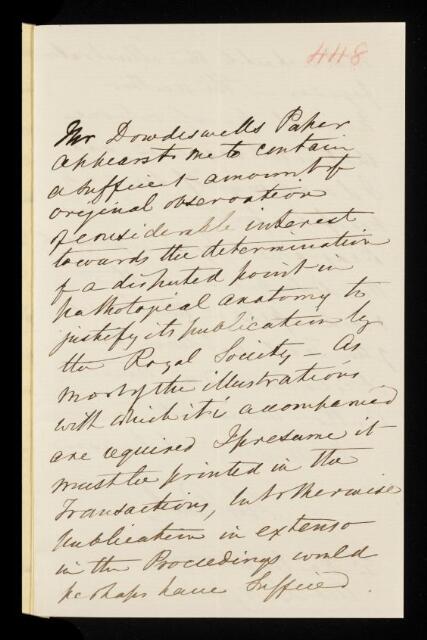 448
Mr Dowdeswells Paper
appears to me to contain
a sufficient amount of
original observation
of considerable interest
towards the determination
of a disputed point in
pathological anatomy to
justify its publication by
the Royal Society – As
most of the illustrations
with which it is accompanied
are required I presume it
must be printed in the
Transactions, but otherwise
publication in extenso
in the Proceedings would
perhaps have sufficed.